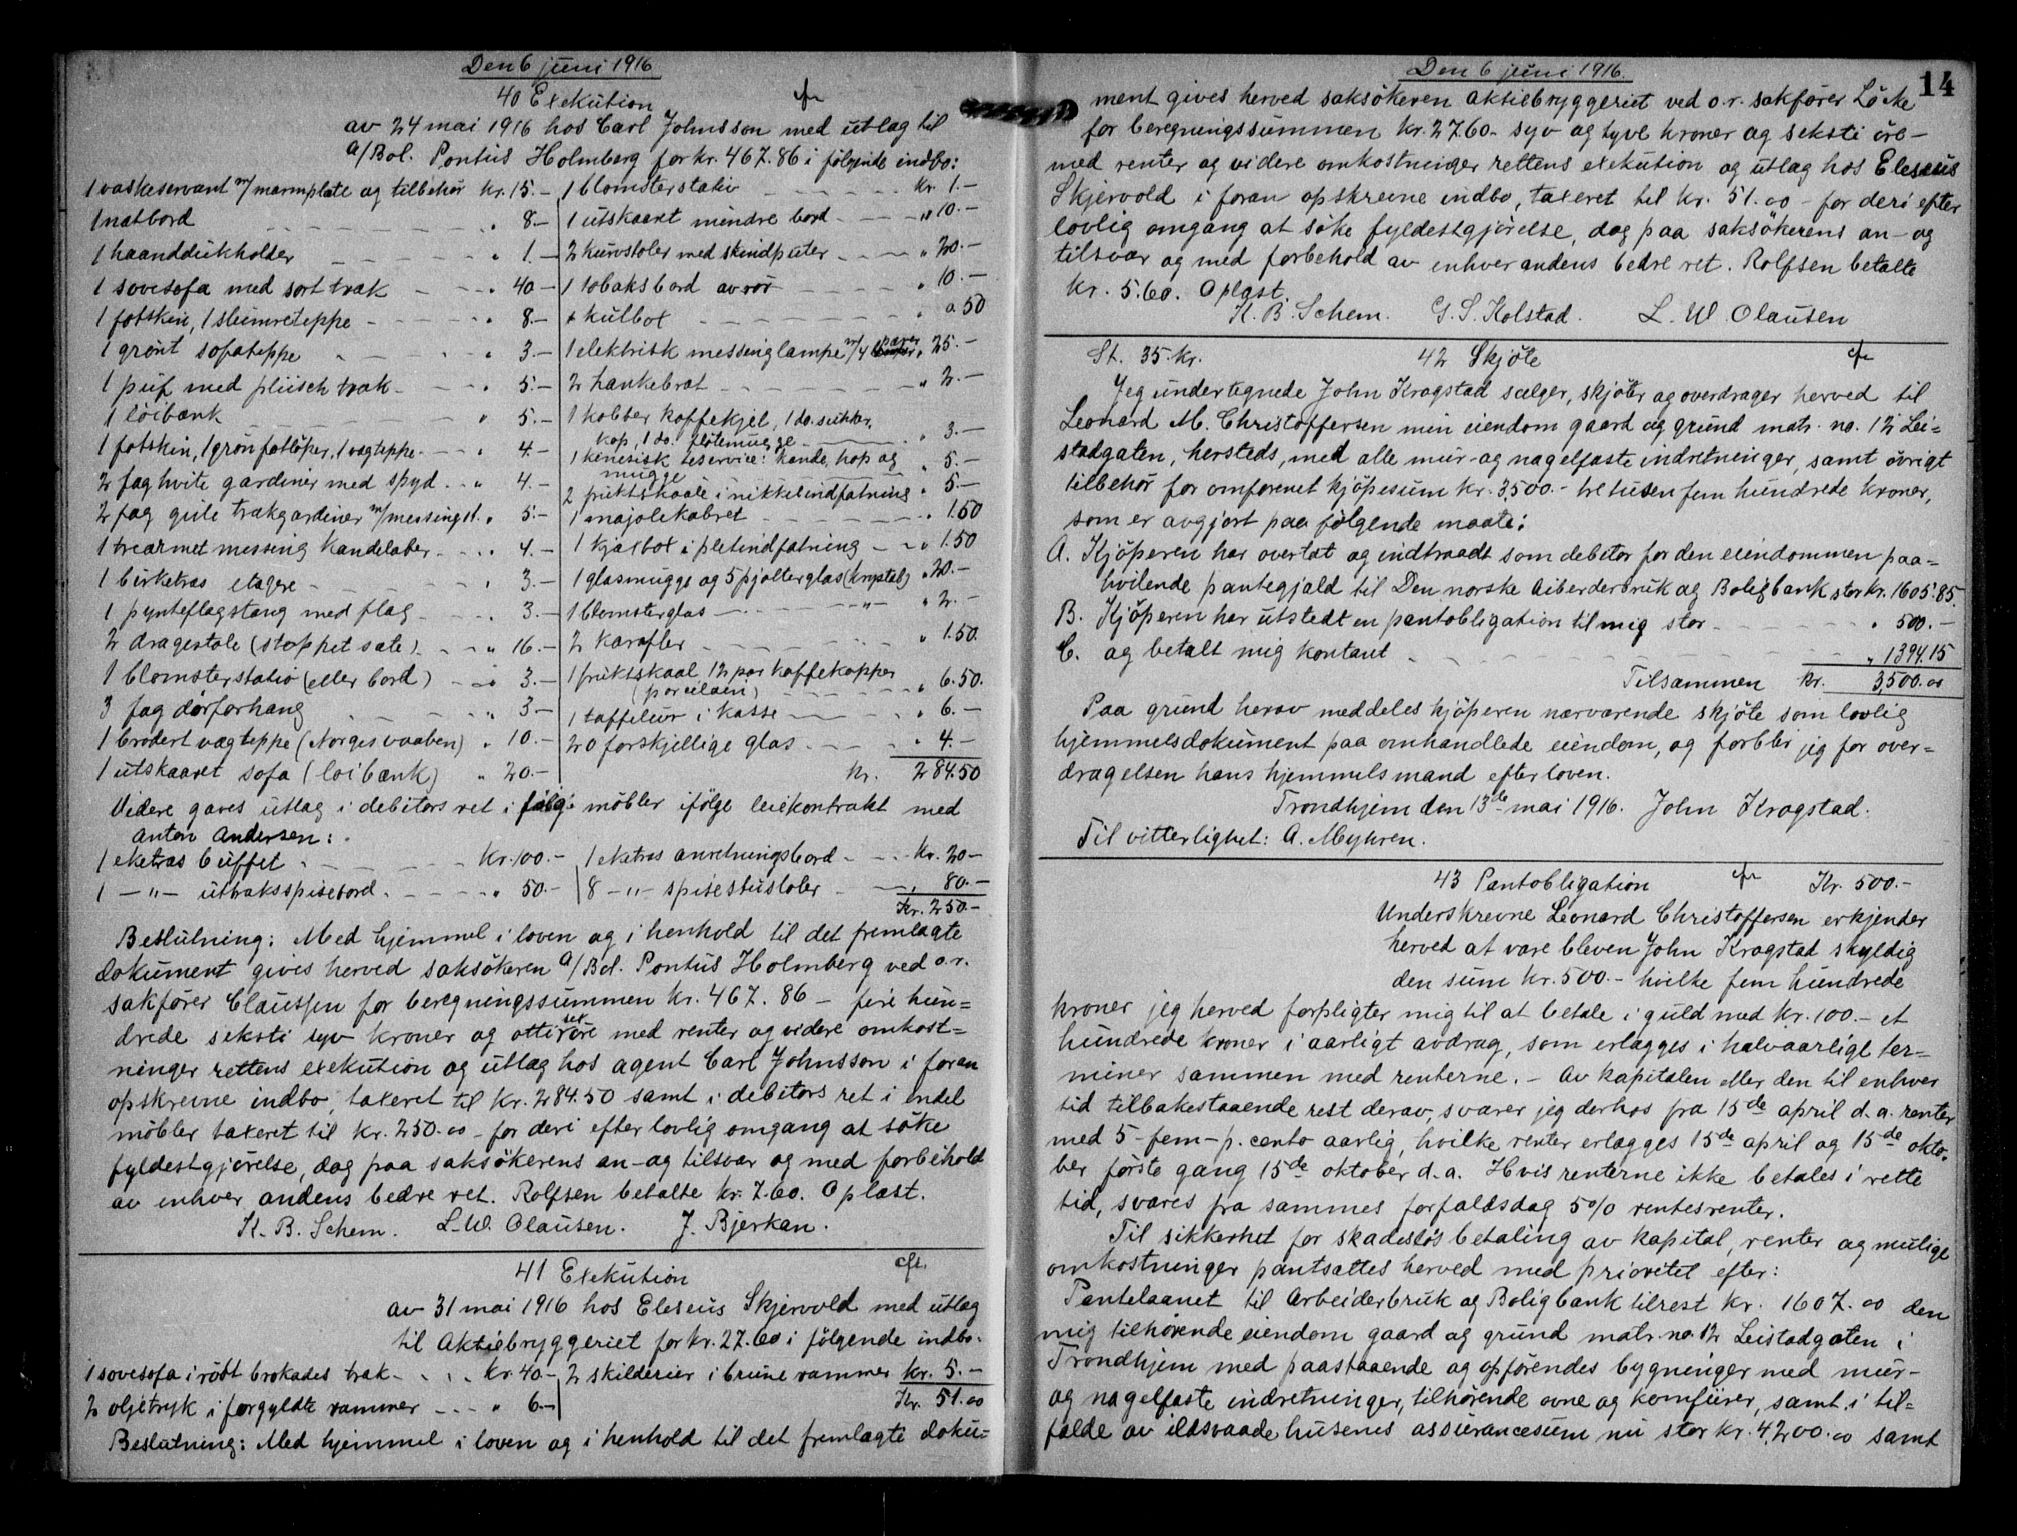 Den 6 juni 1916
40 Exekution
av 24 mai 1916 hos Carl Johnsson med utlag til
A/Bol. Pontus Holmberg for kr. 467.86 i følgende indbo:
1 vaskeservant m/marmplate og tilbehør kr. 15.-
1 natbord " 8-
1 haanddukholder " 1.-
1 sovesofa med sort træk " 40-
1 fotskin, 1 slumreteppe " 8.-
1 grønt sofateppe " 3.-
1 puf med plüsch træk " 5.-
1 løibænk " 5.-
1 fotskin, 1 grøn fotløper, 1 vægteppe " 4.-
2 fag hvite gardiner med spyd " 4.-
2 fag gule trækgardiner m/messingst. " 5.-
1 trearmet messing kandelaber " 4.-
1 birketræs etagere " 3.-
1 pynteflagstang med flag " 3.-
2 dragestole (stoppet sæte) " 16.-
1 blomsterstativ (eller bord) " 3.-
3 fag dørforhang " 3.-
1 brodert vægteppe (Norges vaaben) " 10.-
1 utskaaret sofa (løibænk) " 20.-
1 blomsterstativ kr. 1.-
1 utskaaret mindre bord " 10.-
2 kurvstoler med skindputer " 20.-
1 tobaksbord av rør " 10.-
1 kulbox " 0.50
1 elektrisk messinglampe m/4 pærer " 25.-
2 hankebræt " 2.-
1 kobber kaffekjel, 1 do. sukker-
kop, 1 do. fløtemugge " 3.-
1 kinesisk teservice: kande, kop og
mugge " 5.-
2 fruktskaale i nikkelindfatning " 5.-
1 majolikabret " 1.50
1 kjæxbox i pletindfatning " 1.50
1 glasmugge og 5 pjolterglas (krystal) " 20.-
1 blomsterglas " 2.-
2 karafler " 1.50
1 fruktskaal, 12 par kaffekopper
(porcelæn) " 6.50.
1 taffelur i kasse " 6.-
20 forskjellige glas " 4.-
kr. 284.50
Videre gaves utlæg i debitors ret i følg. møbler ifølge leiekontrakt med
Anton Andersen:
1 eketræs buffet kr. 100.- 1 eketræs anretningsbord kr. 20-
1 -"- uttræksspisebord " 50.- 8 -"- spisestustoler " 80.-
Kr. 250.-
Beslutning: Med hjemmel i loven og i henhold til det fremlagte
dokument gives herved saksøkeren A/Bol. Pontus Holmberg ved o.r.
sakfører Claussen for beregningssummen kr. 467.86 - fire hun=
drede seksti syv kroner og ottisex øre med renter og videre omkost=
ninger rettens exekution og utlæg hos agent Carl Johnsson i foran
opskrevne indbo, taxeret til kr. 284.50 samt i debitors ret i endel
møbler taxeret til kr. 250.00 - for deri efter lovlig omgang at søke
fyldestgjørelse, dog paa saksøkerens an- og tilsvar og med forbehold
av enhver andens bedre ret. Rolfsen betalte kr. 7.60. Oplæst.
K. B. Schem. L. W. Olausen. J. Bjerkan.
41 Exekution
av 31 mai 1916 hos Eleseus Skjervold med utlæg
til Aktiebryggeriet for kr. 27.60 i følgende indbo:
1 sovesofa i rødt brokades træk kr. 40.- 2 skilderier i brune rammer kr. 5.-
2 oljetryk i forgyldte rammer " 6.- Kr. 51.00
Beslutning: Med hjemmel i loven og i henhold til det fremlagte doku=
Den 6 juni 1916.
14
ment gives herved saksøkeren Aktiebryggeriet ved o.r. sakfører Löcke
for beregningssummen kr. 27.60 - syv og tyve kroner og seksti øre -
med renter og videre omkostninger rettens exekution og utlæg hos Eleseus
Skjervold i foran opskrevne indbo, taxeret til kr. 51.00 - for deri efter
lovlig omgang at søke fyldestgjørelse, dog paa saksøkerens an- og
tilsvar og med forbehold av enhver andens bedre ret. Rolfsen betalte
kr. 5.60. Oplæst.
K. B. Schem. G. S. Kolstad. L. W. Olausen
St. 35. kr. 42 Skjøte
Jeg undertegnede John Kragstad sælger, skjøter og overdrager herved til
Leonard M. Christoffersen min eiendom gaard og grund matr. no. 12 Lei=
stadgaten, hersteds, med alle mur- og nagelfaste indretninger, samt øvrigt
tilbehør for omforenet kjøpesum kr. 3,500.- tre tusen fem hundrede kroner,
som er avgjort paa følgende maate:
A. Kjøperen har overtat og indtraadt som debitor for den eiendommen paa=
hvilende pantegjæld til Den norske Arbeiderbruk og Boligbank stor kr. 1605.85.
B. Kjøperen har utstedt en pantobligation til mig stor " 500.-
C. og betalt mig kontant " 1394.15
Tilsammen kr. 3,500.00
Paa grund herav meddeles kjøperen nærværende skjøte som lovlig
hjemmelsdokument paa omhandlede eiendom, og forblir jeg for over=
dragelsen hans hjemmelsmand efter loven.
Trondhjem den 13de mai 1916. John Kragstad.
Til vitterlighet: A. Myhren.
43 Pantobligation Kr. 500.-
Underskrevne Leonard Christoffersen erkjender
herved at være bleven John Kragstad skyldig
den sum kr. 500.- hvilke fem hundrede
kroner jeg herved forpligter mig til at betale i guld med kr. 100.- et
hundrede kroner i aarligt avdrag, som erlægges i halvaarlige ter=
miner sammen med renterne. - Av kapitalen eller den til enhver
tid tilbakestaaende rest derav, svarer jeg derhos fra 15de april d.a. renter
med 5 - fem - p. cento aarlig, hvilke renter erlægges 15de april og 15de okto-
ber første gang 15de oktober d.a. Hvis renterne ikke betales i rette
tid, svares fra sammes forfaldsdag 5% rentesrenter.
Til sikkerhet for skadesløs betaling av kapital, renter og mulige
omkostninger pantsættes herved med prioritet efter:
Pantelaanet til Arbeiderbruk og Boligbank tilrest kr. 1607.00 den
mig tilhørende eiendom gaard og grund matr. no. 12 Leistadgaten i
Trondhjem med paastaaende og opførendes bygninger med mur-
og nagelfaste indretninger, tilhørende ovne og komfurer, samt i til=
fælde av ildsvaade husenes assurancesum nu stor kr. 4,200.00 samt